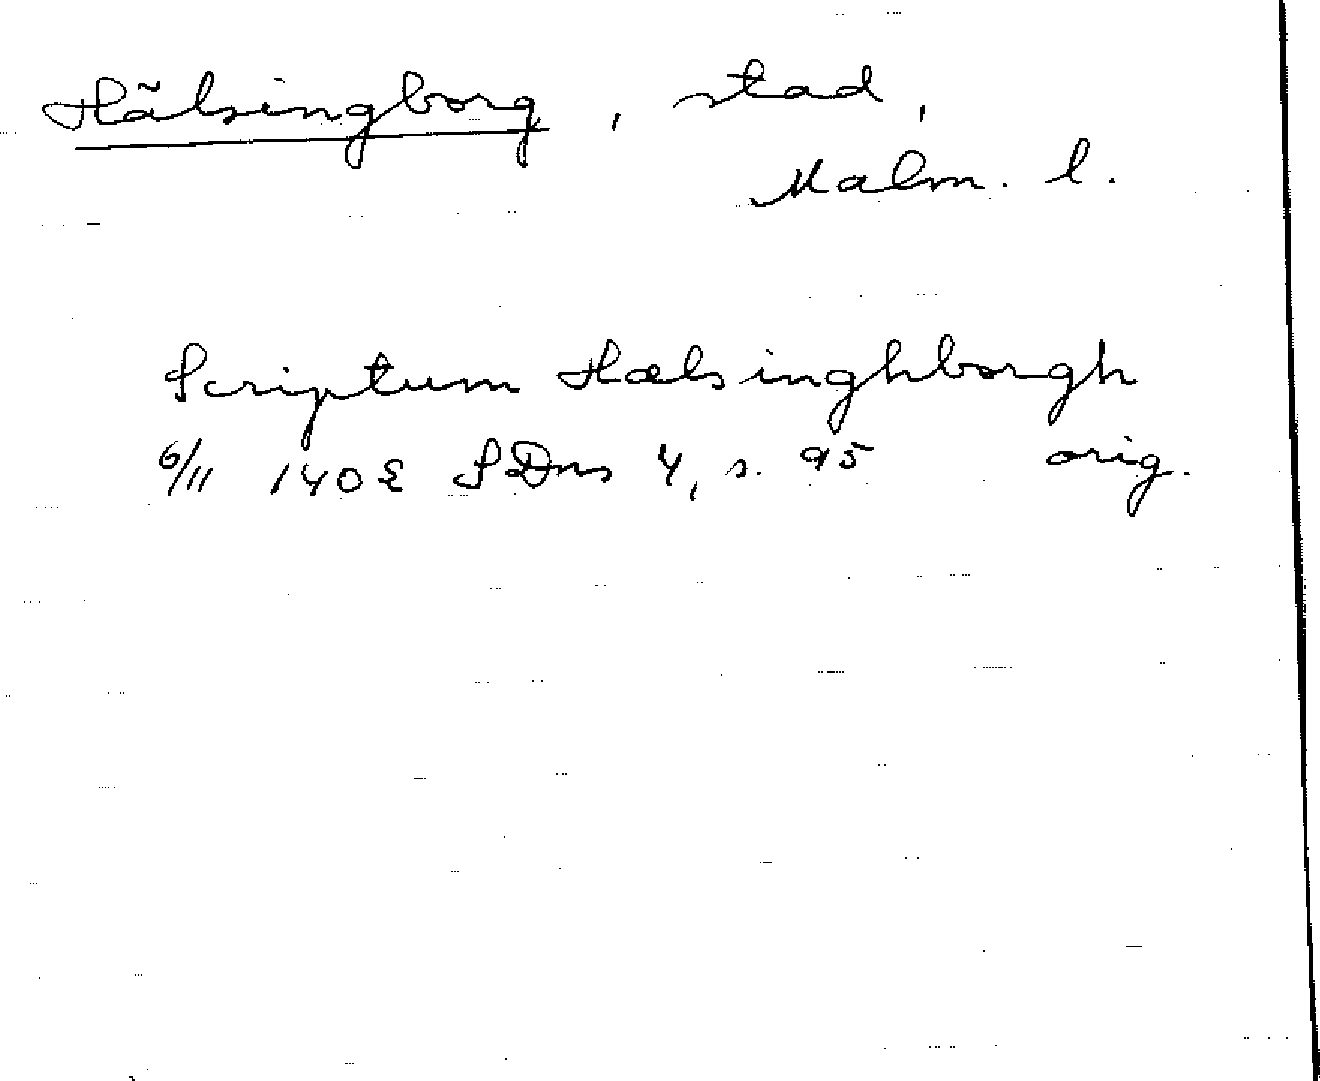 Hälsingborg, stad,
Malm. l.
Scriptum Hælsinghborgh
6/11 SDns 4, s. 95 orig.